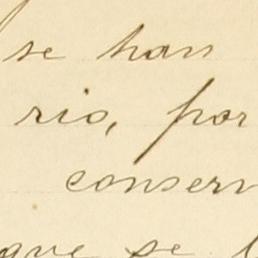 se han
rio, por
conserv
que se